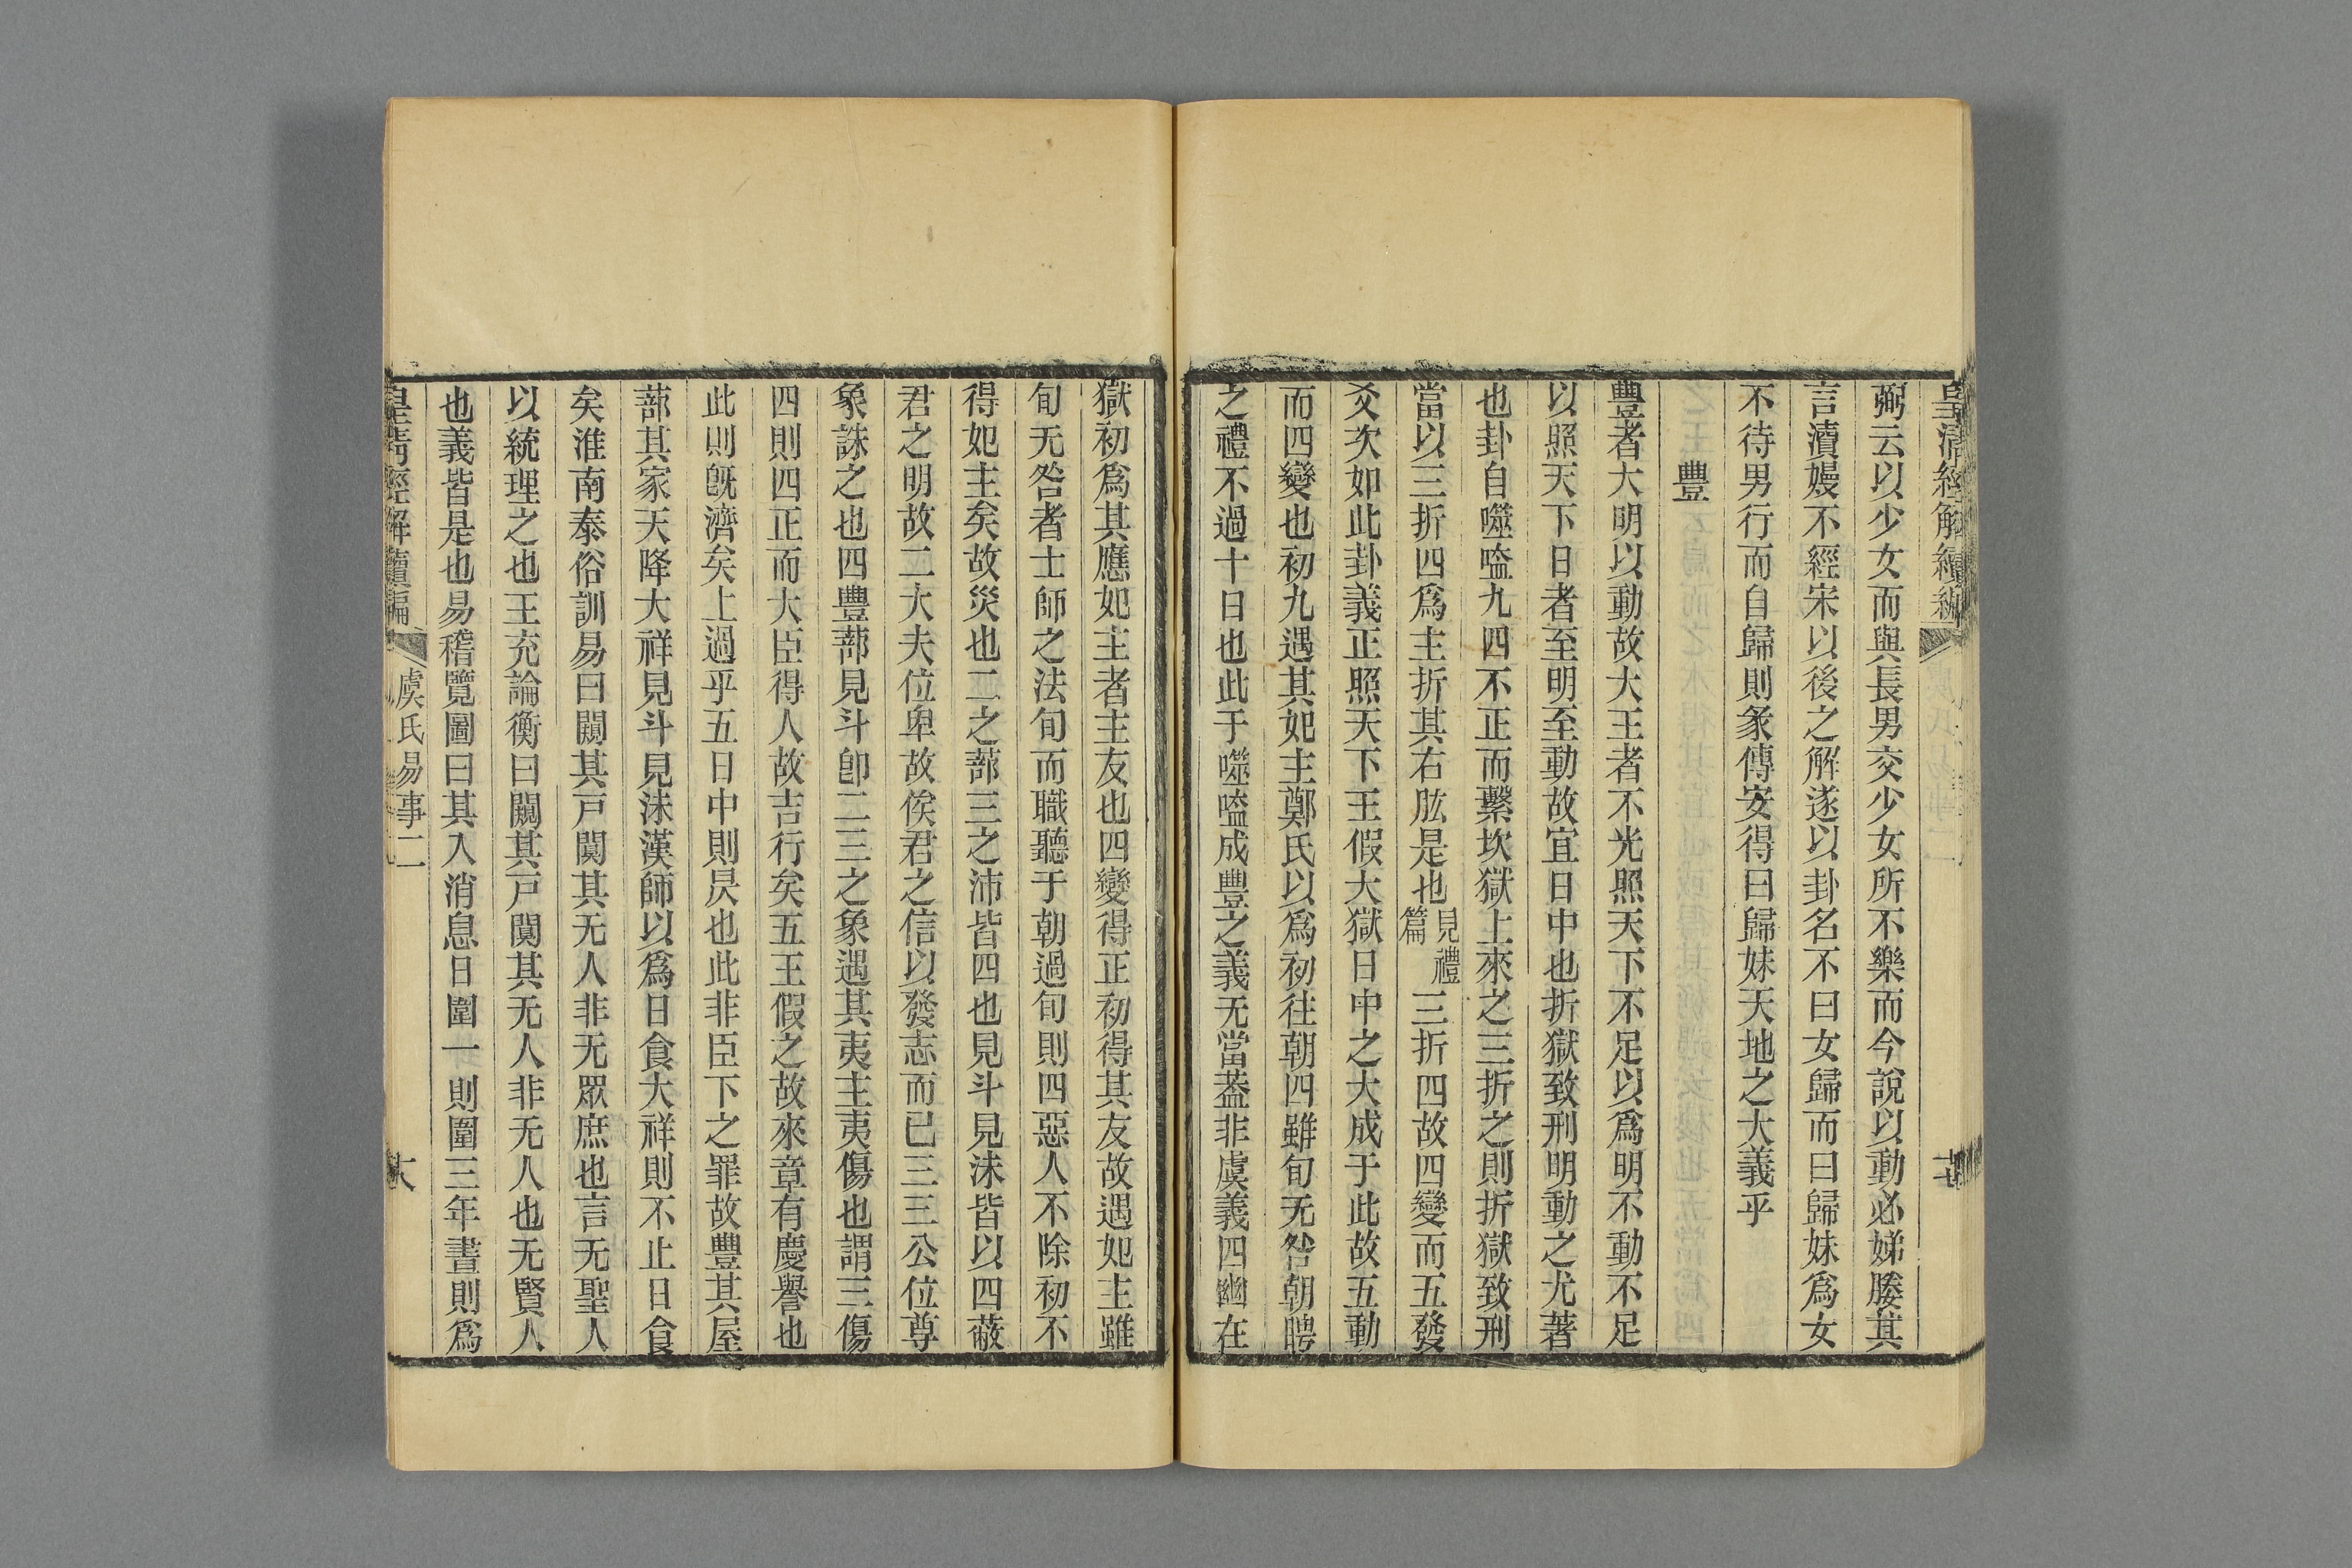 皇清經解續編
弼云以少女而與長男交少女所不樂而今說以動必娣媵其
言瀆嫚不經宋以後之解遂以卦名不曰女歸而曰歸妹爲女
不待男行而自歸則彖傳安得曰歸妹天地之大義乎
豐
豐者大明以動故大王者不光照天下不足以爲明不動不足
以照天下日者至明至動故宜日中也折獄致刑明動之尤著
也卦自噬嗑九四不正而繫坎獄上來之三折之則折獄致刑
當以三折四爲主折其右肱是也見禮篇三折四故四變而五發
爻次如此卦義正照天下王假大獄日中之大成于此故五動
而四變也初九遇其妃主鄭氏以爲初往朝四雖旬无咎朝聘
之禮不過十日也此于噬嗑成豐之義无當葢非虞義四幽在
獄初爲其應妃主者主友也四變得正初得其友故遇妃主雖
旬无咎者士師之法旬而職聽于朝過旬則四惡人不除初不
得妃主矣故災也二之蔀三之沛皆四也見斗見沬皆以四蔽
君之明故二大夫位卑故俟君之信以發志而已三三公位尊
象誅之也四豐蔀見斗卽二三之象遇其夷主夷傷也謂三傷
四則四正而大臣得人故吉行矣五王假之故來章有慶譽也
此則旣濟矣上過乎五日中則昃也此非臣下之罪故豐其屋
蔀其家天降大祥見斗見沬漢師以爲日食大祥則不止日食
矣淮南泰俗訓易曰闚其戸闃其无人非无眾庶也言无聖人
以統理之也王充論衡曰闚其戸闃其无人非无人也无賢人
也義皆是也易稽覽圖曰其入消息日圍一則圍三年晝則爲
皇清經解續編 虞氏易事二 大